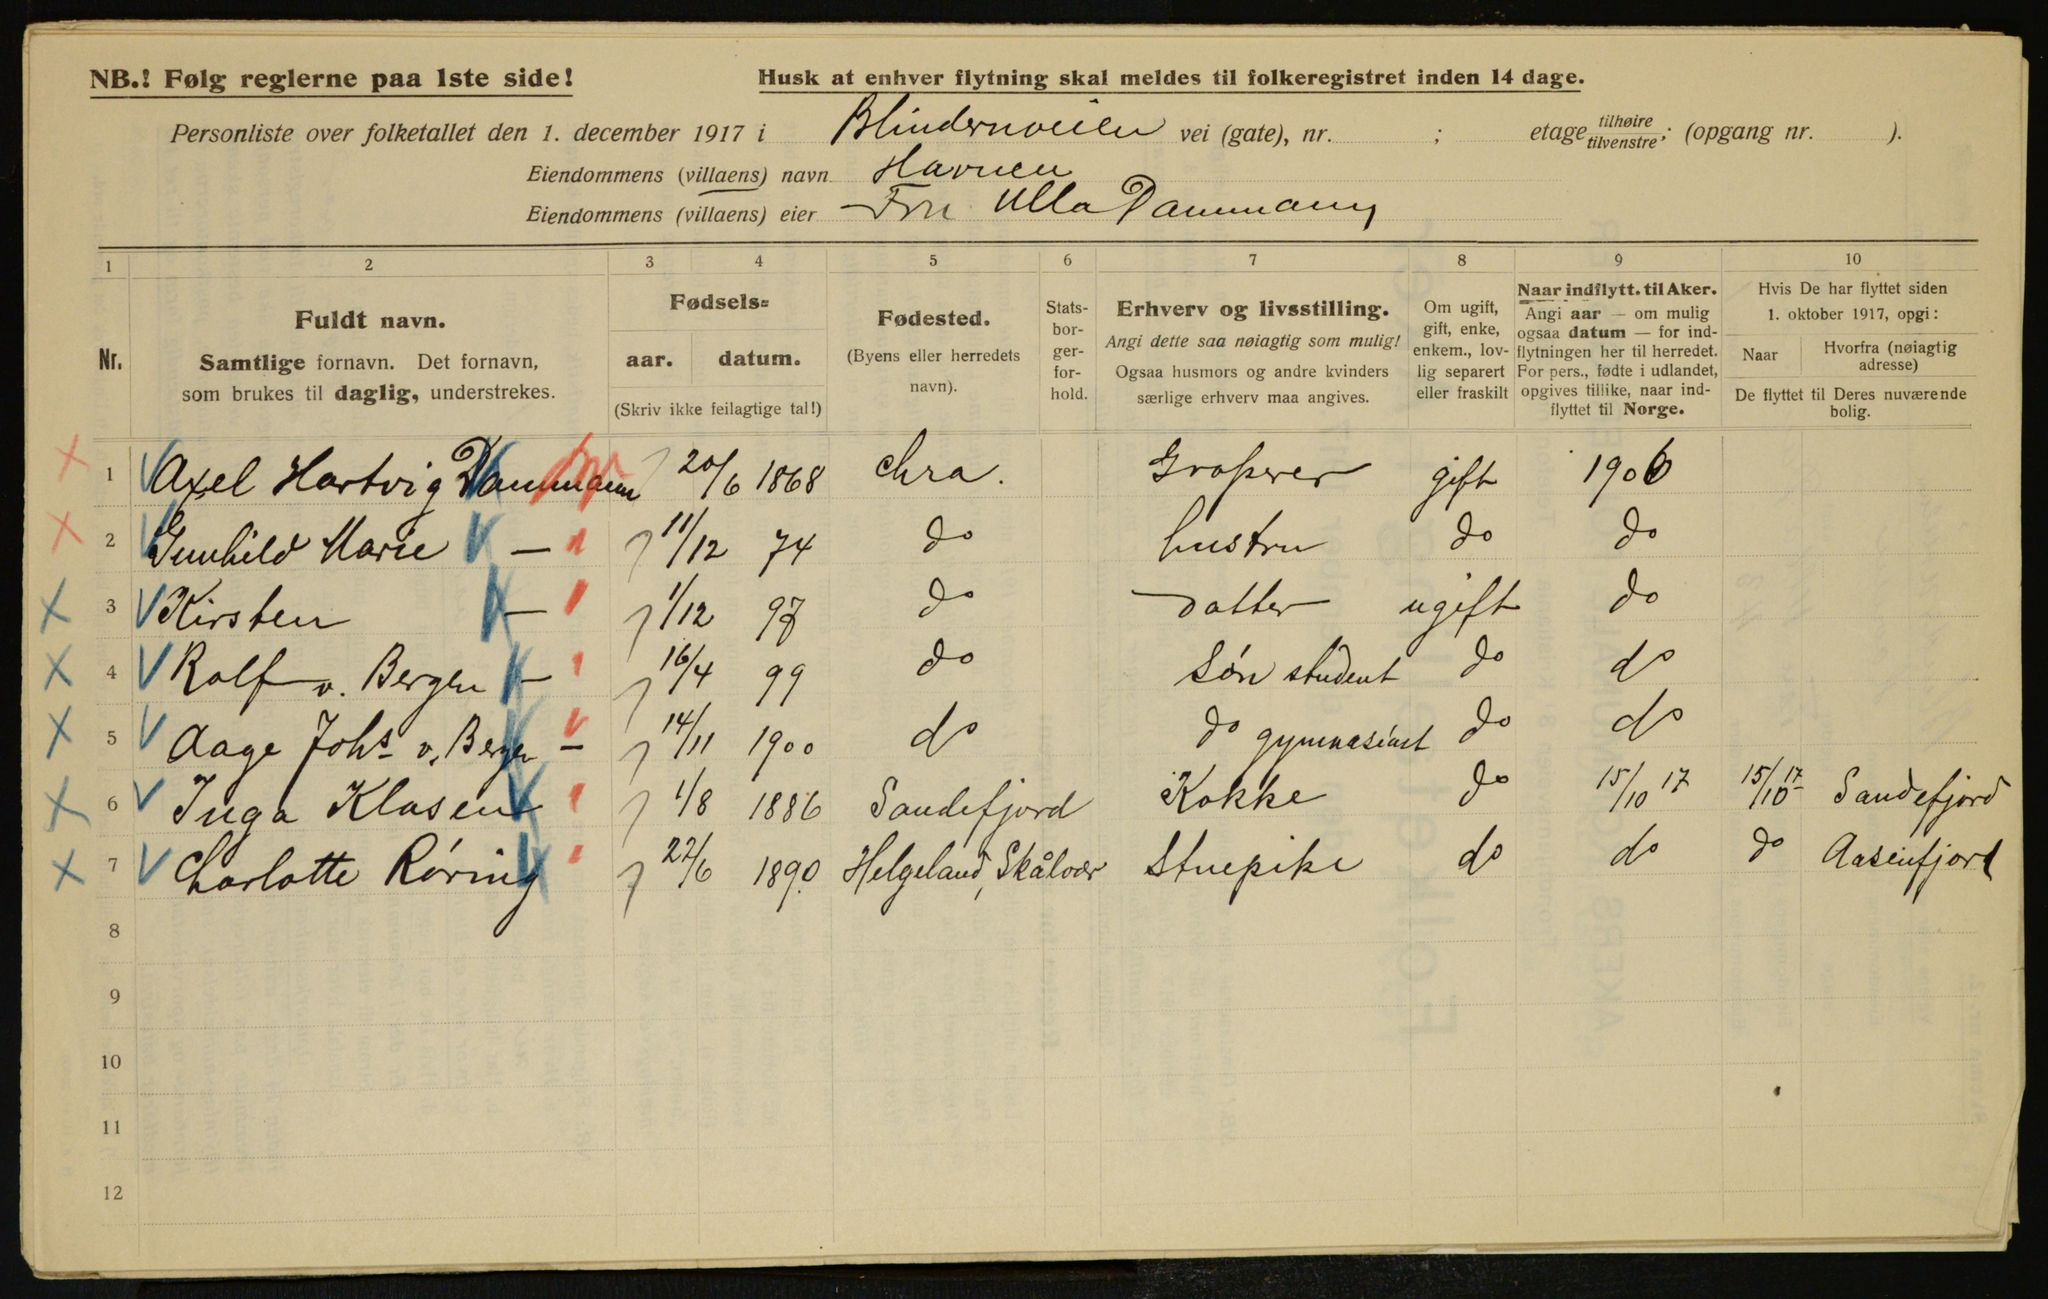 NB.! Følg reglerne paa 1ste side!
Husk at enhver flytning skal meldes til folkeregistret inden 14 dage.
Personliste over folketallet den 1. december 1917 i Blindernveien vei (gate), nr. ; etage tilhøire tilvenstre; (opgang nr. ).
Eiendommens (villaens) navn Havnen
Eiendommens (villaens) eier Fru Ulla Dammann
1 2 3 4 5 6 7 8 9 10
Nr.
Fuldt navn.
Samtlige fornavn. Det fornavn,
som brukes til daglig, understrekes.
Fødsels-
aar. datum.
(Skriv ikke feilagtige tal!)
Fødested.
(Byens eller herredets
navn).
Stats-
bor-
ger-
for-
hold.
Erhverv og livsstilling.
Angi dette saa nøiagtig som mulig!
Ogsaa husmors og andre kvinders
særlige erhverv maa angives.
Om ugift,
gift, enke,
enkem., lov-
lig separert
eller fraskilt
Naar indflytt. til Aker.
Angi aar — om mulig
ogsaa datum — for ind-
flytningen her til herredet.
For pers., fødte i udlandet,
opgives tillike, naar ind-
flyttet til Norge.
Hvis De har flyttet siden
1. oktober 1917, opgi:
Naar
Hvorfra (nøiagtig
adresse)
De flyttet til Deres nuværende
bolig.
1 Axel Hartvig Dammann 20/6 1868 Chra. Grosserer gift 1906
2 Gunhild Marie — 11/12 74 do hustru do do
3 Kirsten — 1/12 97 do datter ugift do
4 Rolf v. Bergen — 16/4 99 do Søn student do do
5 Aage Johs v. Bergen — 14/11 1900 do do gymnasiast do do
6 Inga Klasen 1/8 1886 Sandefjord Kokke do 15/10 17 15/10 17 Sandefjord
7 Charlotte Røring 22/6 1890 Helgeland, Skålvær Stuepike do do do Aasenfjord
8
9
10
11
12